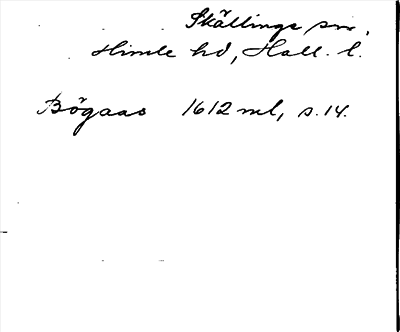 Skällinge sn,
Himle hd, Hall. l.
Bögaas 1612 ml, s. 14.